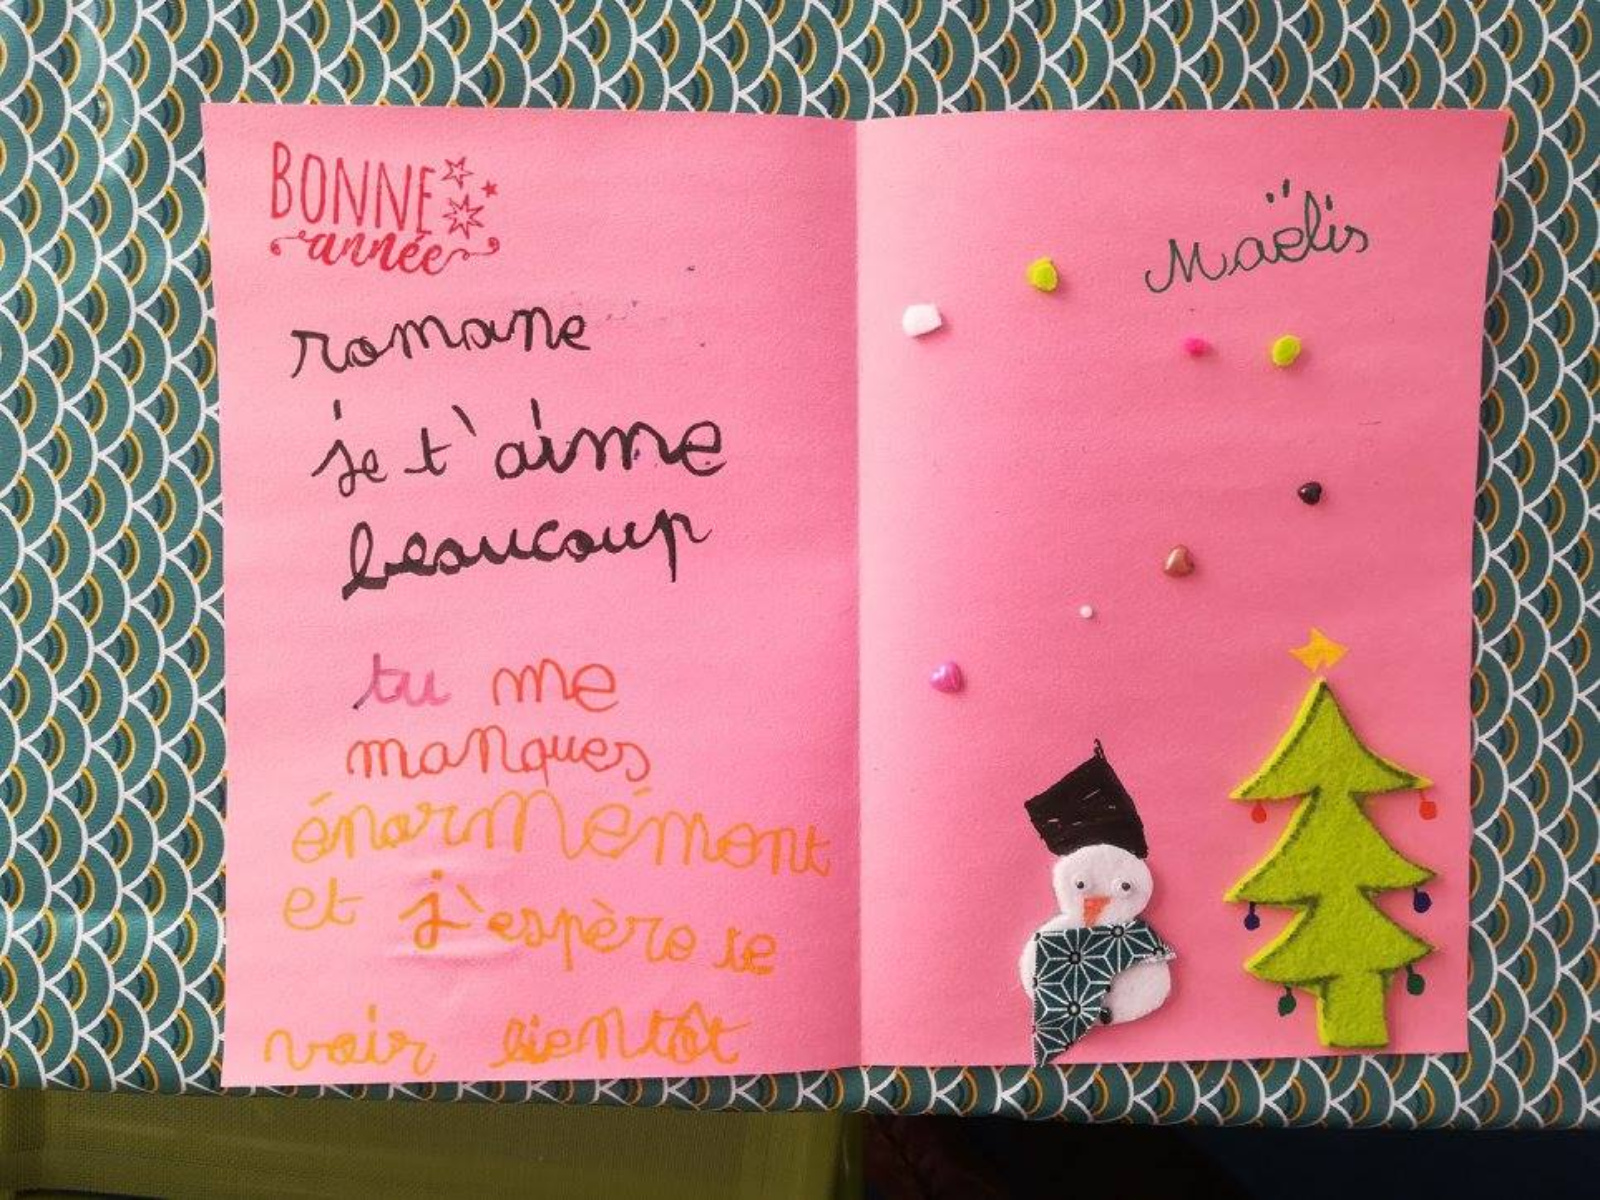 BONNE
année
romane
je t'aime
beaucoup
tu me
manques
énormément
et j'espère te
voir bientôt
Maëlis